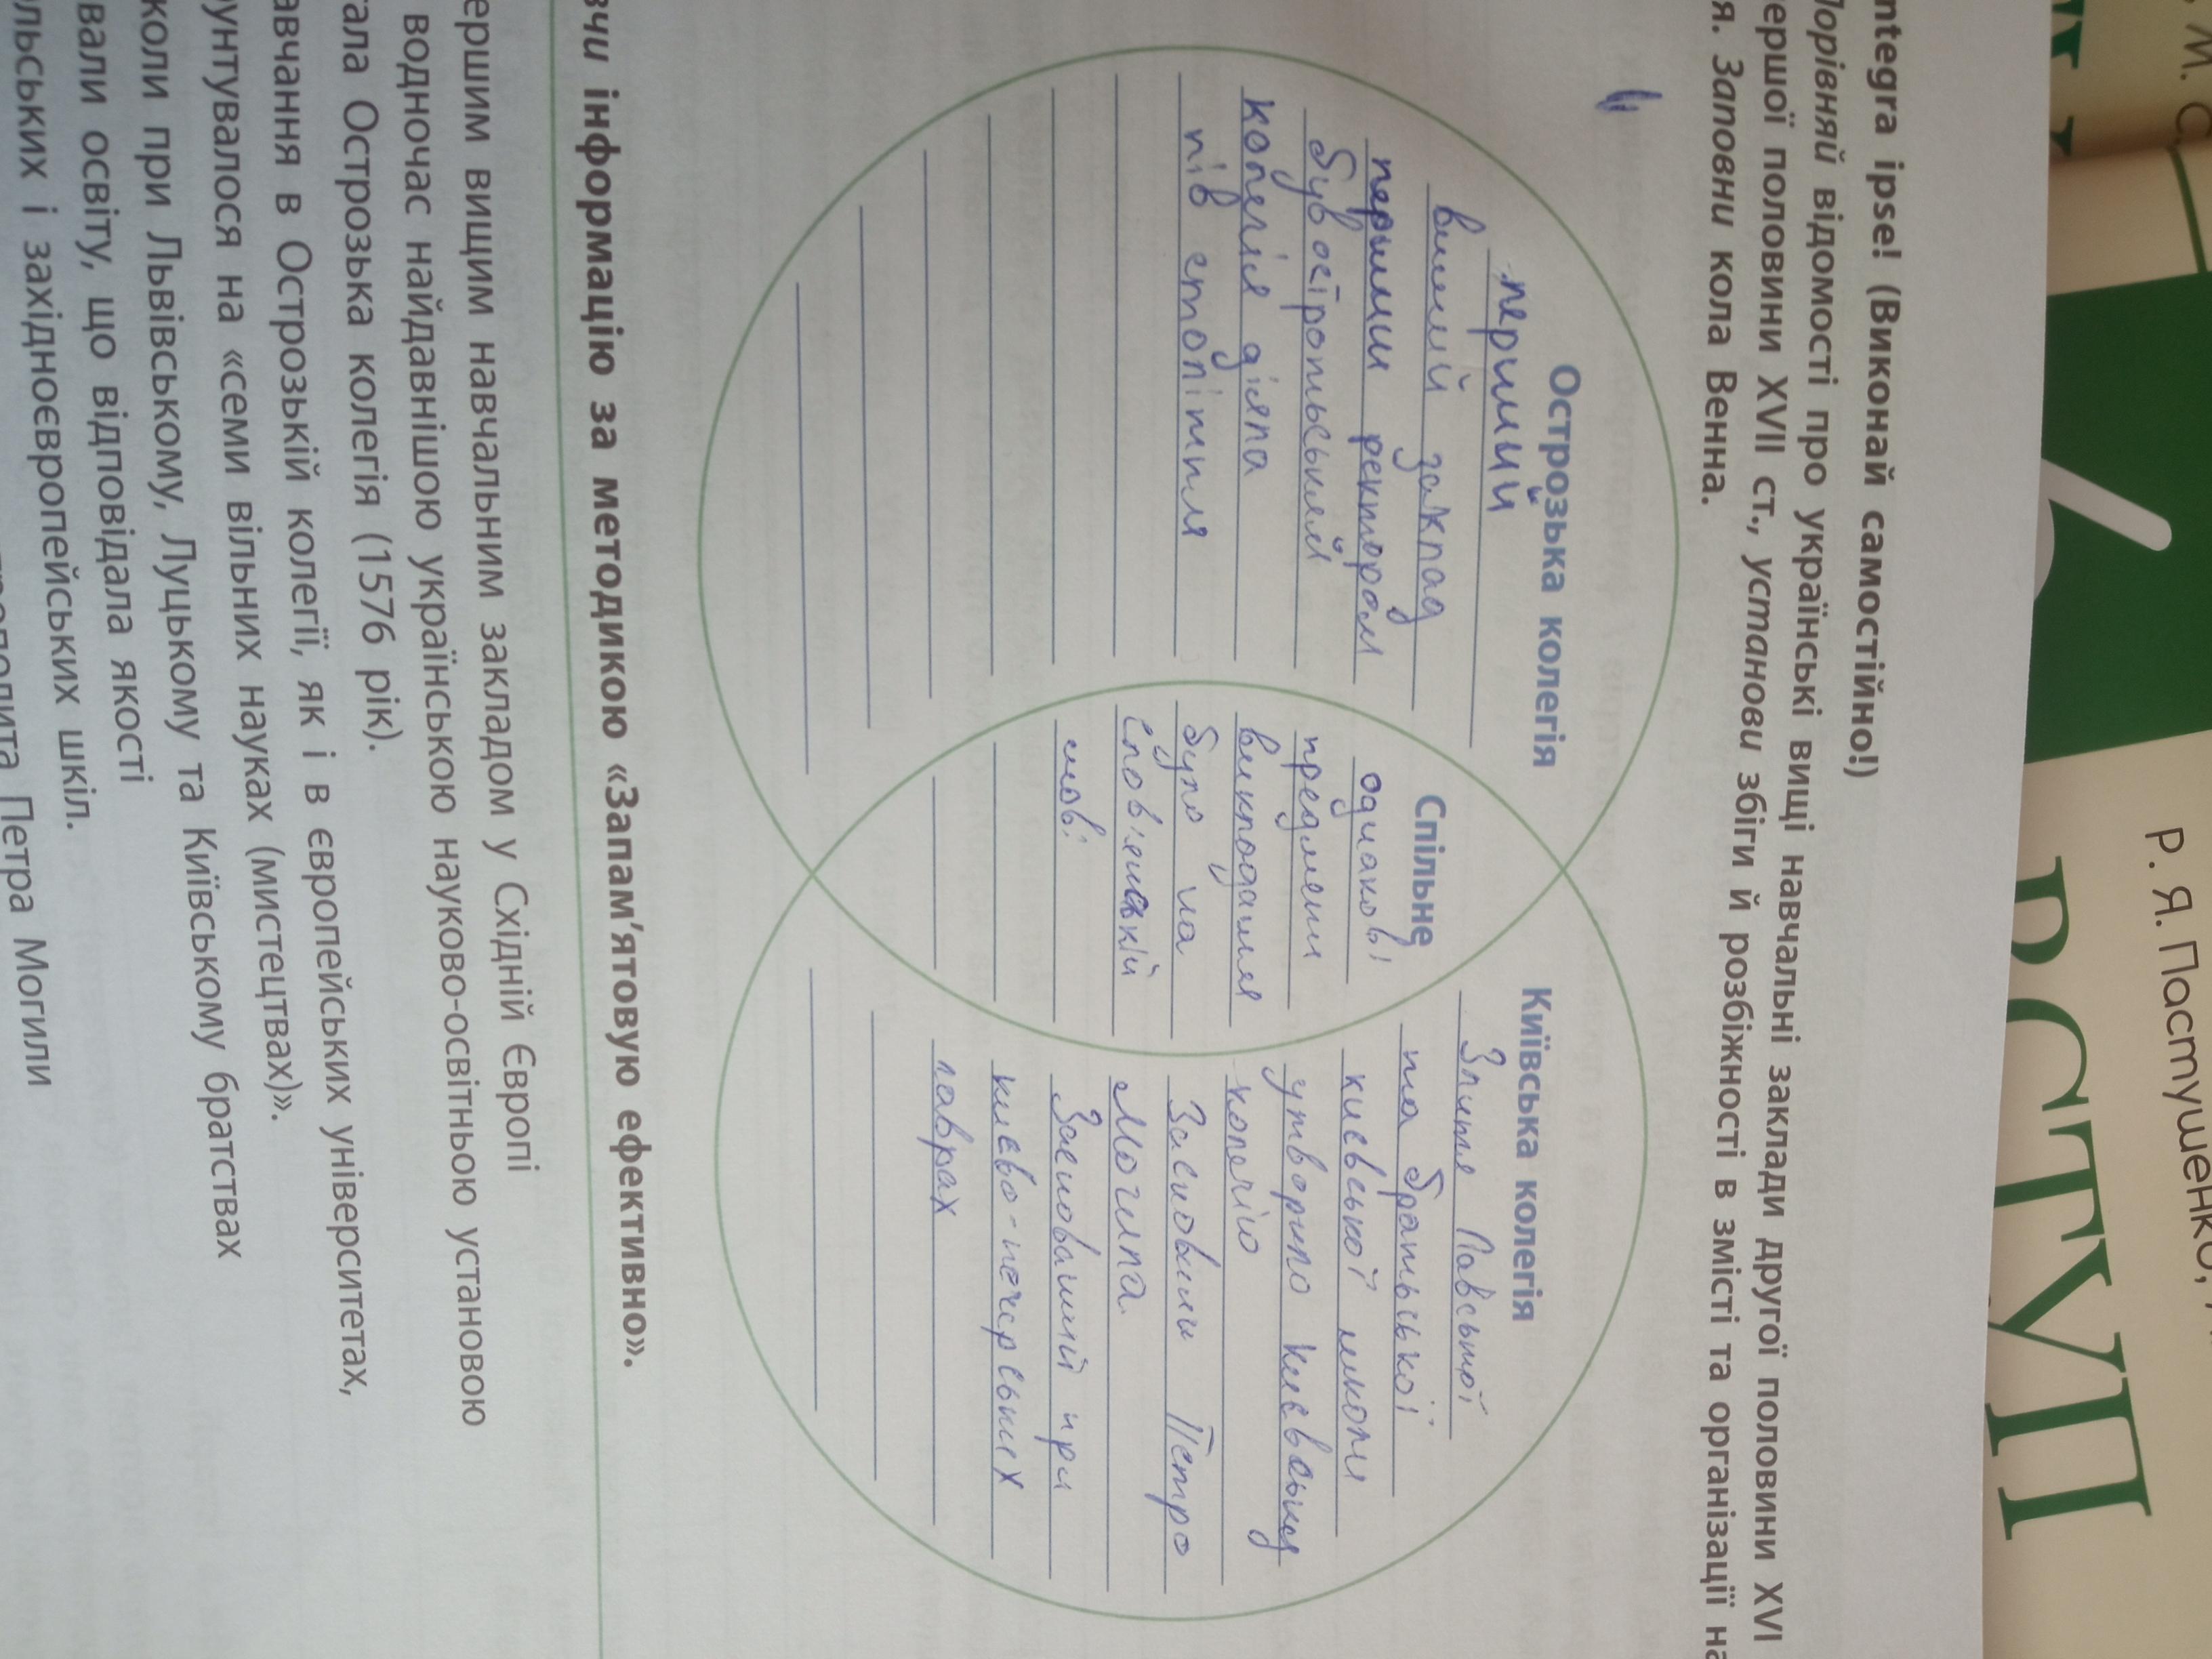 М. С
Р. Я. Пастушенко,
ВСТУП
ntegra ipse! (Виконай самостійно!)
Порівняй відомості про українські вищі навчальні заклади другої половини XVI
ершої половини XVII ст., установи збіги й розбіжності в змісті та організації на
я. Заповни кола Венна.
Острозька колегія
перший
вищий заклад
першим ректором
був остропським
колегія діяла
пів століття
Спільне
однакові
предмети
викладання
було на
слов'янській
мові
Київська колегія
Злиття Лавської
та братської
києвської школи
утворило києвську
колегію
Засновник Петро
Могила.
Заснований при
києво-печерських
лаврах
вчи інформацію за методикою «Запам'ятовую ефективно».
ершим вищим навчальним закладом у Східній Європі
водночас найдавнішою українською науково-освітньою установою
тала Острозька колегія (1576 рік).
авчання в Острозькій колегії, як і в європейських університетах,
рунтувалося на «семи вільних науках (мистецтвах)».
коли при Львівському, Луцькому та Київському братствах
вали освіту, що відповідала якості
ольських і західноєвропейських шкіл.
Петра Могили